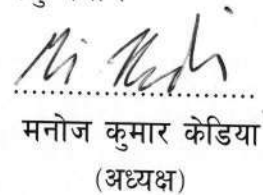 मनोज कुमार केडिया
(अध्यक्ष)